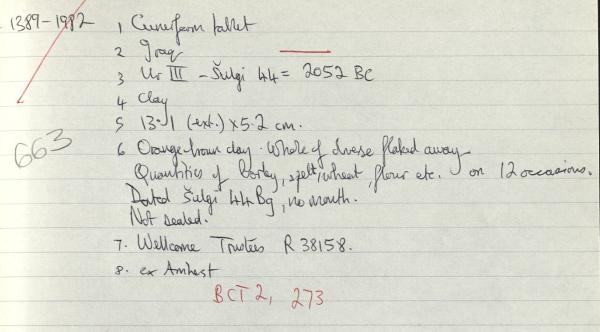 1389-1982 1 Cuneiform tablet
2 Iraq
3 Ur III - Šulgi 44 = 2052 BC
4 Clay
5 13.1 (ext.) x 5.2 cm.
663
6 Orange-brown clay. Whole of obverse flaked away
Quantities of barley, spelt, wheat, flour etc. on 12 occasions.
Dated Šulgi 44 Bg, no month.
Not sealed.
7. Wellcome Trustees R 38158.
8. ex Amherst
BCT 2, 273